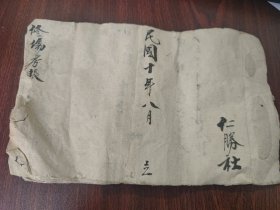 仁勝社
民國十年八月 立
修場房錢